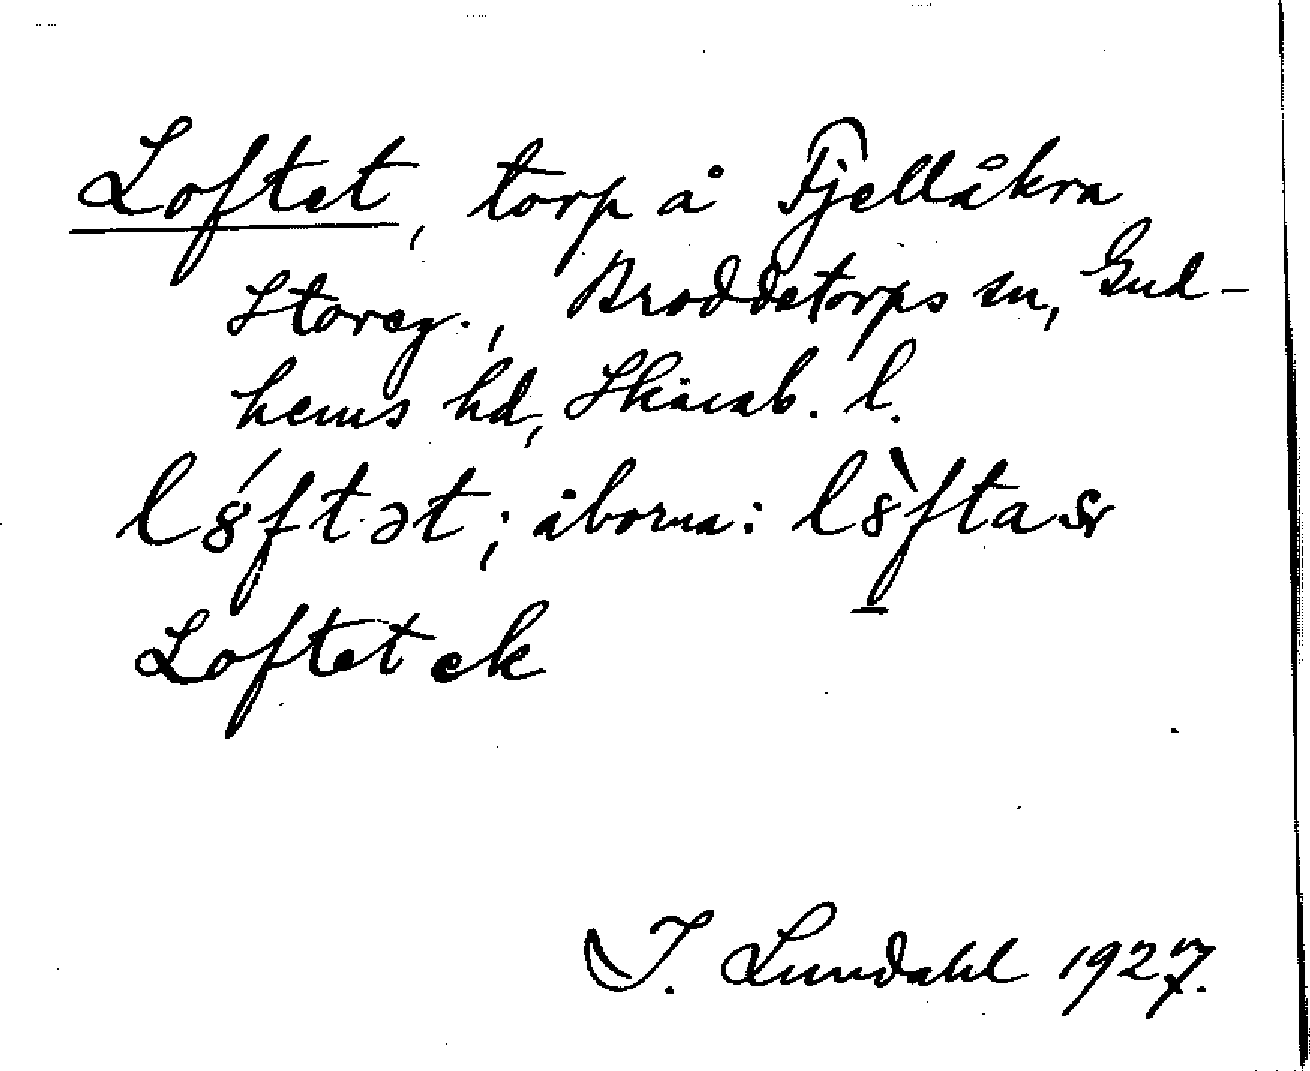 Loftet, torp å Fjellåkra
Storeg., Broddetorps sn, Gud-
hems hd, Skarab. l.
l8́ftət; åborna: l8̀ftasr
Loftet ek
I. Lundahl 1927.